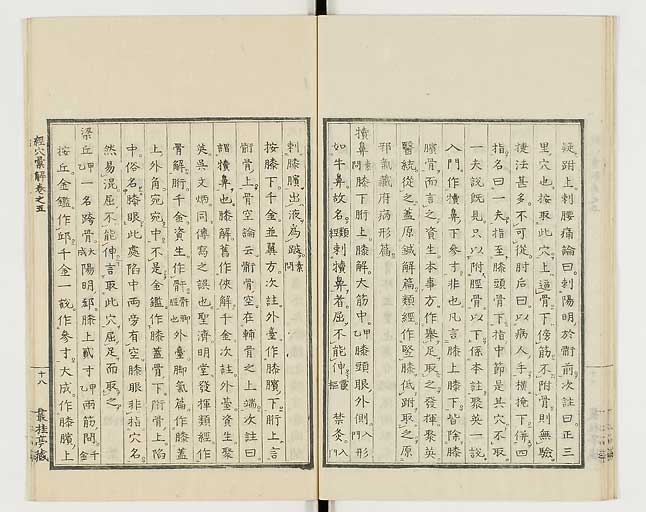 疑跗上刺腰痛論曰刺陽明於䯒前次註曰正三
里穴也按取此穴上邉骨下傍筋不附骨則無驗
捷法甚多不可從肘后曰以病人手橫掩下併四
指名曰一夫指至膝頭骨下指中節是其穴不取
一夫說既見只以附脛骨以下係本註聚英一說
入門作犢鼻下參寸非也凡言膝上膝下皆除膝
臏骨而言之資生本事方作舉足取之發揮聚英
醫統從之蓋原鍼解篇類經作竪膝低跗取之原
邪氣藏府病形篇
犢鼻素問膝下䯒上骨膝解大筋中甲乙膝頭眼外側入門形
如牛鼻故名類經刺犢鼻者屈不能伸靈樞禁灸入門
刺膝臏出液為跛素問
按膝下千金並翼方次註外臺作膝臏下䯒上言
䯒骨上骨空論云䯒骨空在輔骨之上端次註曰
謂犢鼻也膝解舊作俠解千金次註外臺資生聚
英吳文炳同傳寫之誤也聖濟明堂發揮類經作
骨解䯒千金資生作骭骭脚脛也外臺脚氣篇作膝蓋
上外角宛宛中不是金鑑作膝蓋骨下䯒骨上陷
中俗名膝眼此處陷中兩旁有空膝眼非指穴名
然易混屈不能伸言取此穴屈足而取之
梁丘甲乙一名跨骨大成陽明郄膝上貳寸甲乙兩筋間千金
按丘金鑑作邱千金一說作參寸大成作膝臏上
經穴彙解卷之五
十八
叢桂亭藏